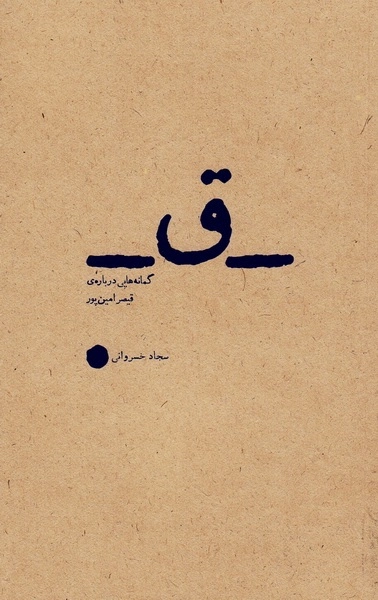 _ق_
گمانه‌هایی درباره‌ی
قیصر امین‌پور
سجاد خسروانی